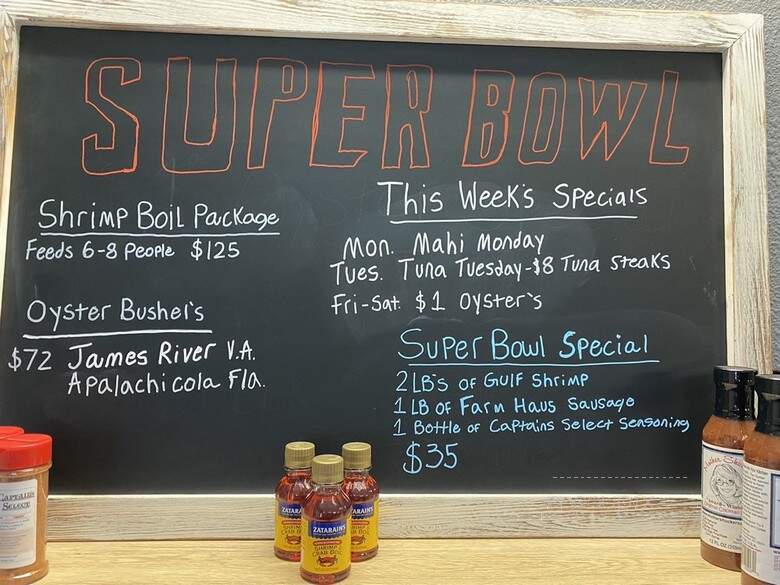 SUPER BOWL
Shrimp Boil Package
Feeds 6-8 People $125
Oyster Bushel's
$72 James River V.A.
Apalachicola Fla.
This Week's Specials
Mon. Mahi Monday
Tues. Tuna Tuesday-$8 Tuna Steaks
Fri-Sat. $1 Oyster's
Super Bowl Special
2 LB's of Gulf Shrimp
1 LB of Farm Haus Sausage
1 Bottle of Captains Select Seasoning
$35
CAPTAINS
SELECT
ZATARAIN'S
SHRIMP &
CRAB BOIL